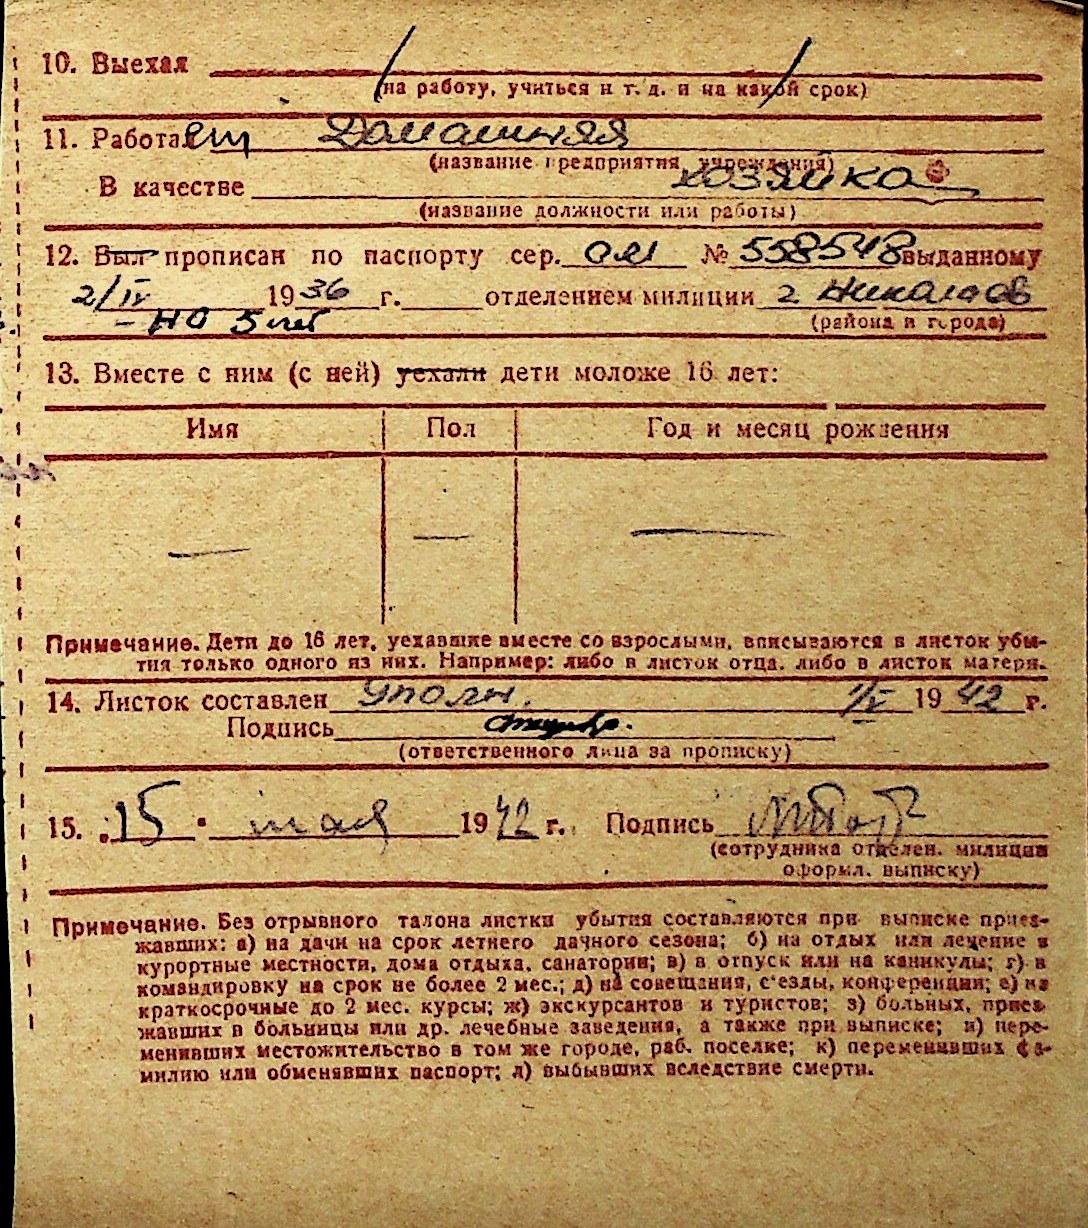 10. Выехал
(на работу, учиться и т. д. и на какой срок)
11. Работает Домашняя
(название предприятия, учреждения)
В качестве хозяйка
(название должности или работы)
12. Был прописан по паспорту сер. ОМ № 558548 выданному
2/IV 1936 г. отделением милиции г Николаев
- на 5 лет (района и города)
13. Вместе с ним (с ней) уехали дети моложе 16 лет:
Имя Пол Год и месяц рождения
— — —
Примечание. Дети до 16 лет, уехавшие вместе со взрослыми, вписываются в листок убы-
тия только одного из них. Например: либо в листок отца, либо в листок матери.
14. Листок составлен Уполн. 1/V 1942 г.
Подпись
(ответственного лица за прописку)
15. „15" мая 1942 г. Подпись
(сотрудника отделен. милиции
оформл. выписку)
Примечание. Без отрывного талона листки убытия составляются при выписке приез-
жавших: а) на дачи на срок летнего дачного сезона; б) на отдых или лечение в
курортные местности, дома отдыха, санатории; в) в отпуск или на каникулы; г) в
командировку на срок не более 2 мес.; д) на совещания, с'езды, конференции; е) на
краткосрочные до 2 мес. курсы; ж) экскурсантов и туристов; з) больных, приез-
жавших в больницы или др. лечебные заведения, а также при выписке; и) пере-
менивших местожительство в том же городе, раб. поселке; к) переменивших фа-
милию или обменявших паспорт; л) выбывших вследствие смерти.